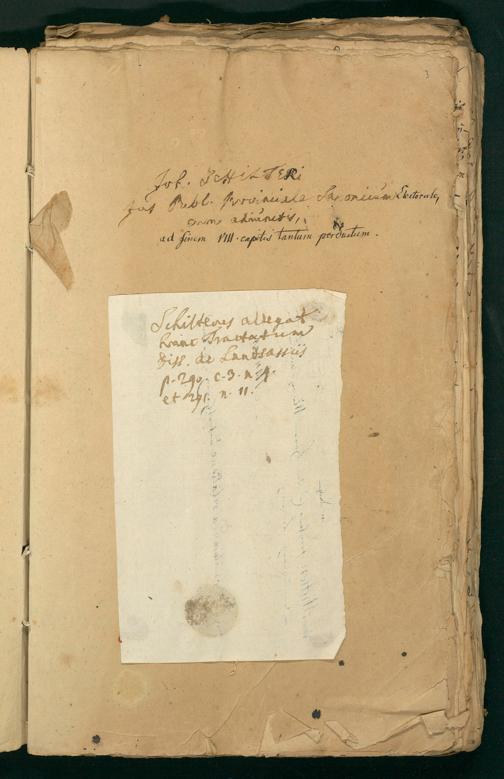 3
Joh. SCHILTERI
Jus Publ. Provinciale Saxonicum Electorale,
cum adiunctis,
ad finem VIII. capitis tantum perductum.
Schilterus allegat
hunc Tractatum
diss. de Landsassiis
p. 290. c. 3. n. 9.
et 291. n. 11.